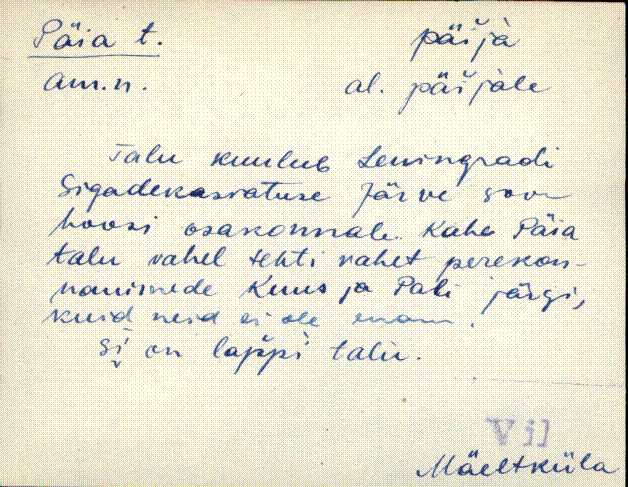 Päia t. päi̬jà
am.n. al. päi̬jàle
Talu kuulub Leningradi
Sigadekasvatuse Järve sov-
hoosi osakonnale. Kahe Päia
talu vahel tehti vahet perekon-
nanimede Kuus ja Pali järgi,
kuid neid ei ole enam.
Si̬ on lappi talu.
Vil
Mäeltküla